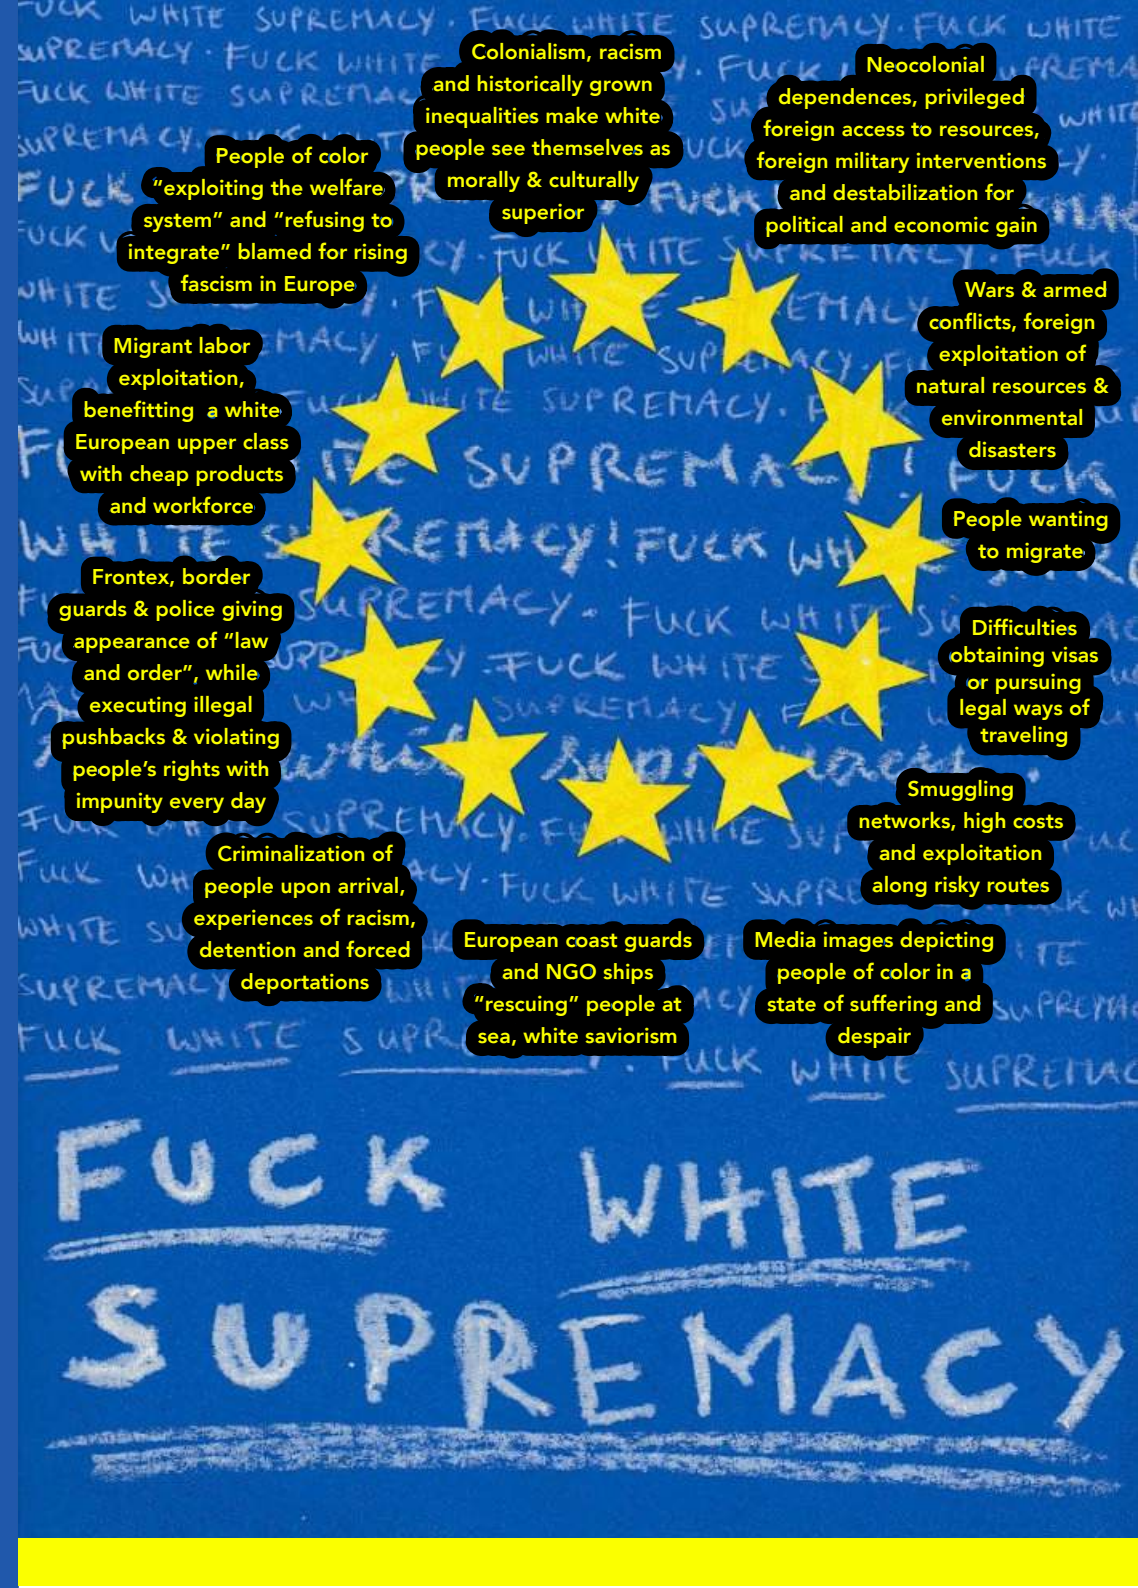 FUCK WHITE SUPREMACY. FUCK WHITE SUPREMACY. FUCK WHITE
SUPREMACY. FUCK WHITE
FUCK WHITE
Colonialism, racism
and historically grown
inequalities make white
people see themselves as
morally & culturally
superior
Neocolonial
dependences, privileged
foreign access to resources,
foreign military interventions
and destabilization for
political and economic gain
Wars & armed
conflicts, foreign
exploitation of
natural resources &
environmental
disasters
People wanting
to migrate
Difficulties
obtaining visas
or pursuing
legal ways of
traveling
Smuggling
networks, high costs
and exploitation
along risky routes
Media images depicting
people of color in a
state of suffering and
despair
European coast guards
and NGO ships
“rescuing” people at
sea, white saviorism
Criminalization of
people upon arrival,
experiences of racism,
detention and forced
deportations
Frontex, border
guards & police giving
appearance of “law
and order”, while
executing illegal
pushbacks & violating
people’s rights with
impunity every day
Migrant labor
exploitation,
benefitting a white
European upper class
with cheap products
and workforce
People of color
“exploiting the welfare
system” and “refusing to
integrate” blamed for rising
fascism in Europe
FUCK WHITE
WHITE SUPREMACY.
SUPREMACY! FUCK
WHITE SUPREMACY! FUCK
SUPREMACY. FUCK WHITE
FUCK WHITE
SUPREMACY
white supremacy.
SUPREMACY.
FUCK FUCK WHITE
WHITE
SUPREMACY
FUCK WHITE FUCK WHITE SUPREMACY
FUCK WHITE
SUPREMACY